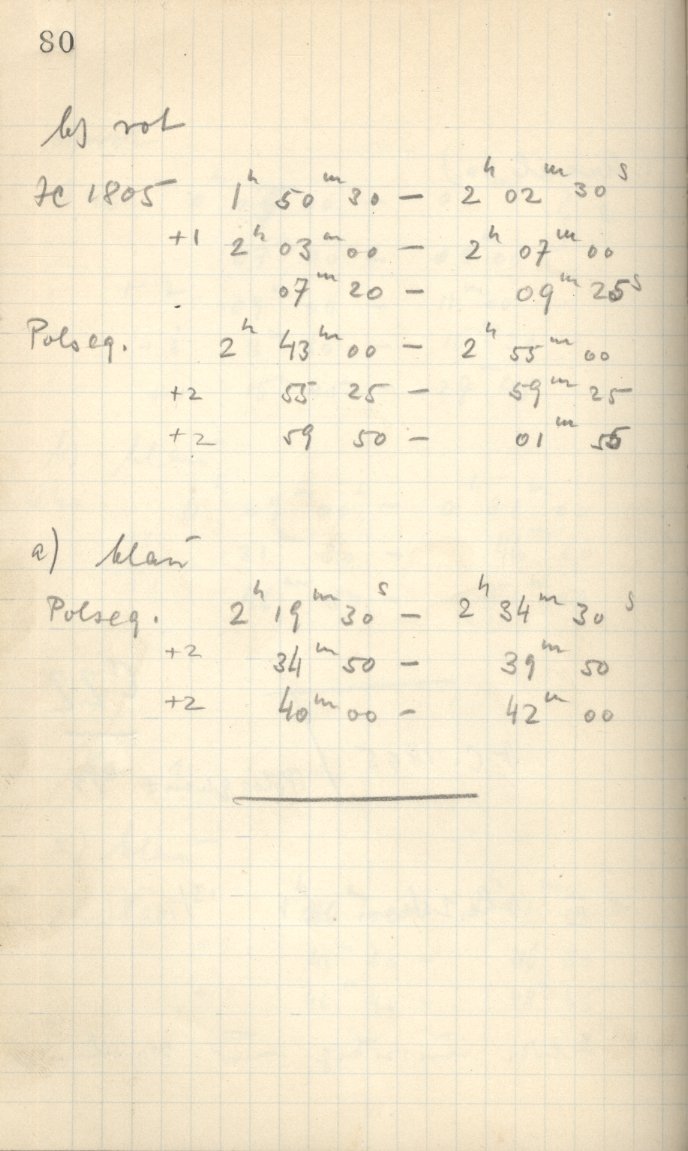 80
b) rot
JC 1805 1h 50m 30 – 2h 02m 30s
+1 2h 03m 00 – 2h 07m 00
07m 20 – 09m 25s
Polseq. 2h 43m 00 – 2h 55m 00
+2 55 25 – 59m 25
+2 59 50 – 01m 55
a) blau
Polseq. 2h 19m 30s – 2h 34m 30s
+2 34m 50 – 39m 50
+2 40m 00 – 42m 00